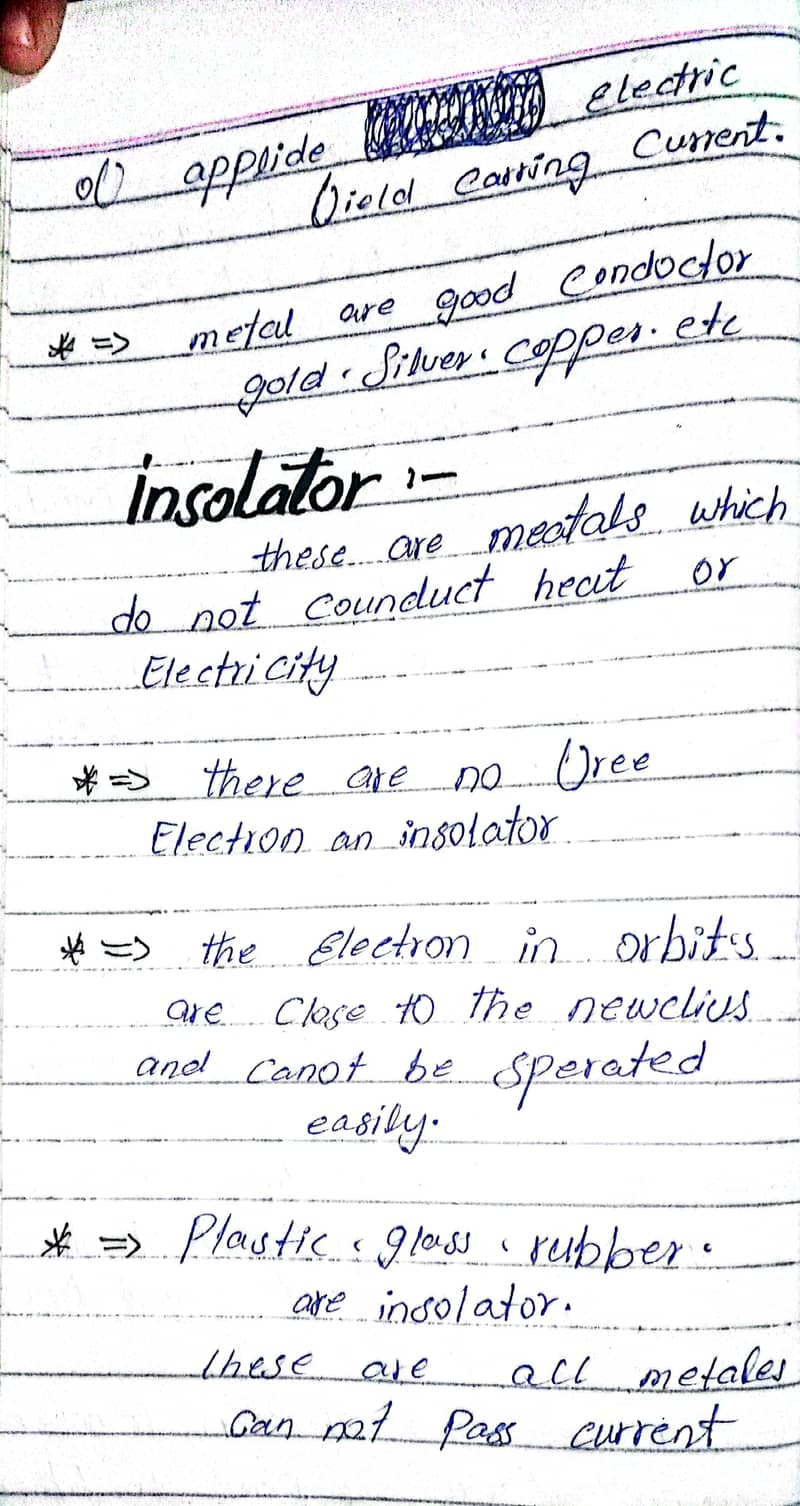 of applide electric
field Carring Current.
* => metal are good Condoctor
gold, Silver, Copper. etc
insolator :-
these are meatals which
do not Counduct heat or
Electricity
* => there are no free
Electron an insolator
* => the Electron in orbits
are Close to The newclius
and Canot be Sperated
easily.
* => Plastic, glass, rubber.
are insolator.
these are all metales
Can not Pass current